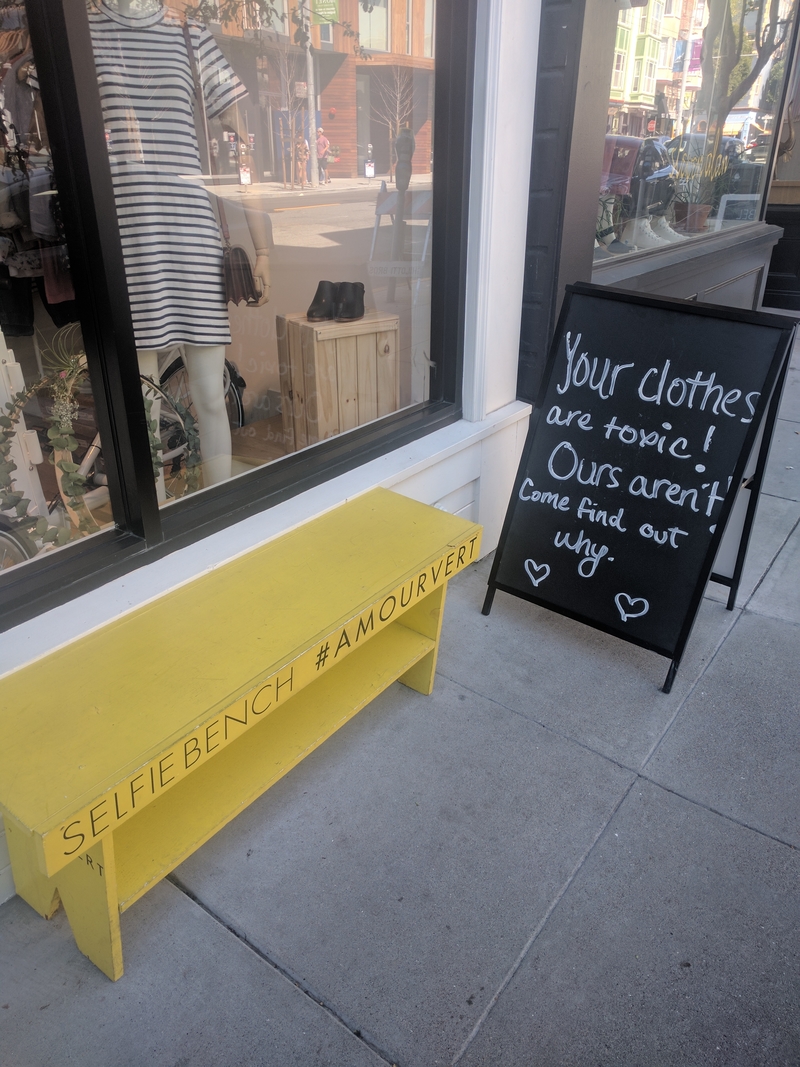 Your clothes
are toxic!
Ours aren't!
Come find out
why.
SELFIE BENCH #AMOURVERT
ERT